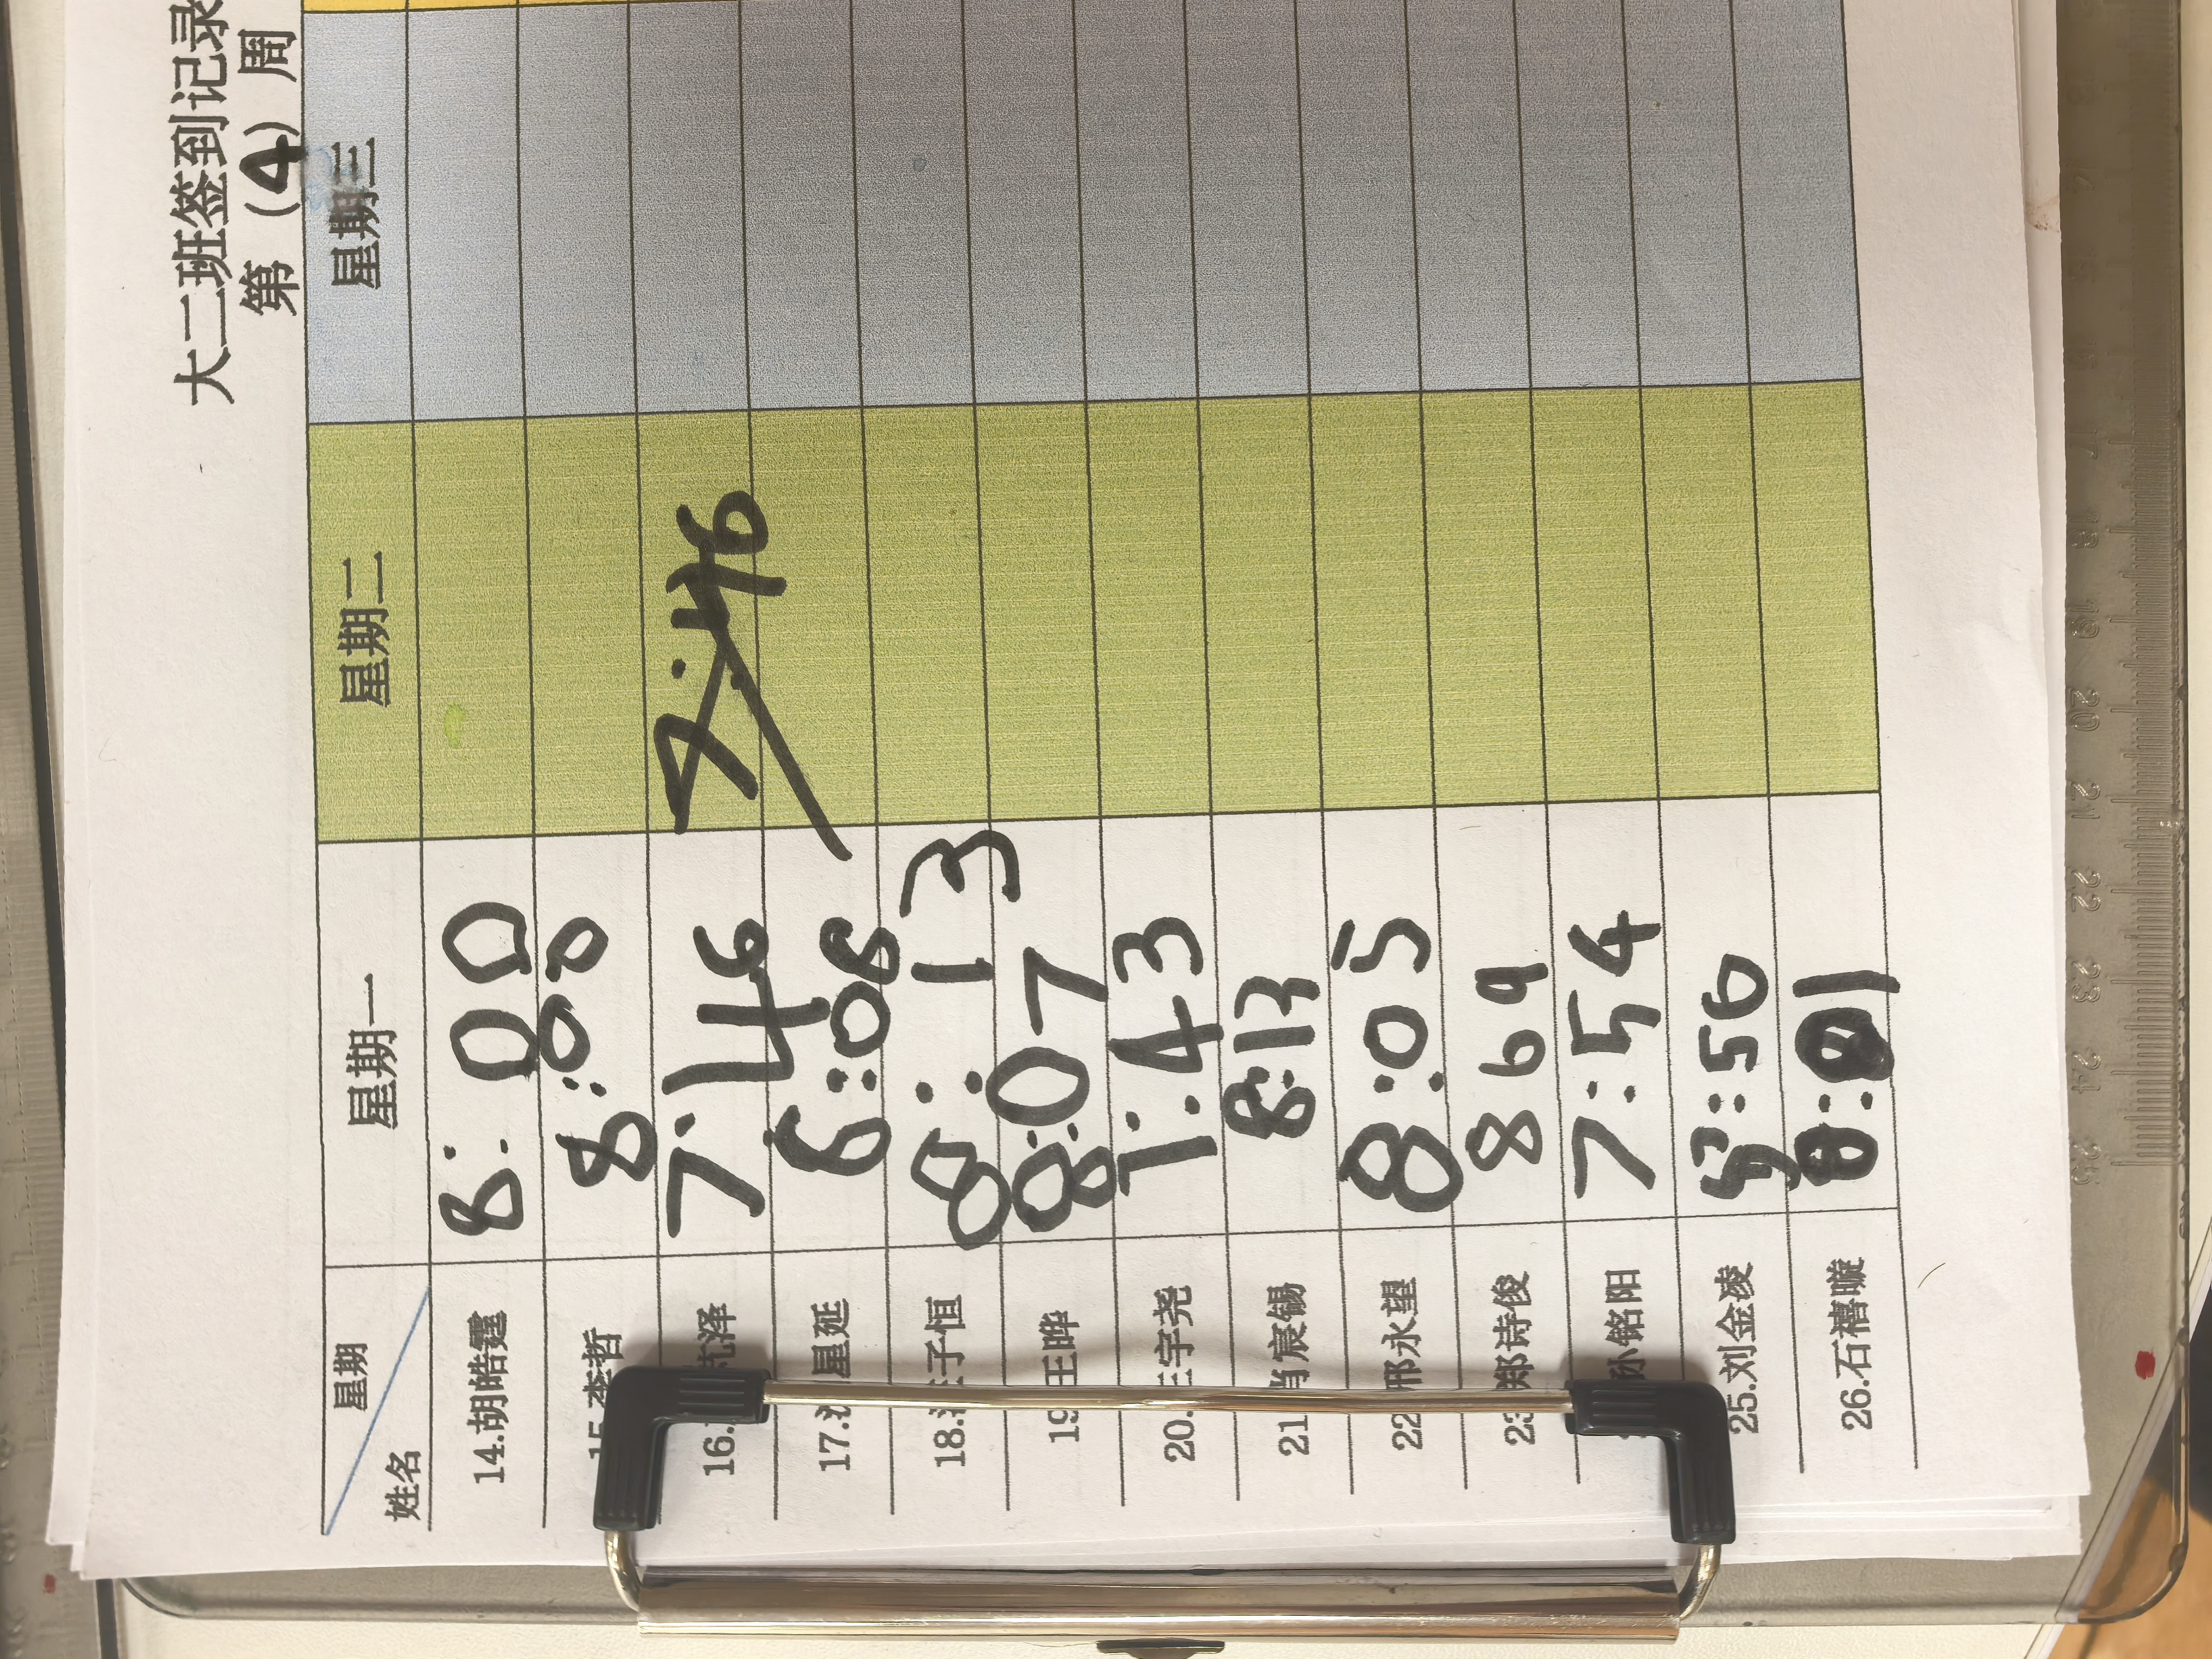 大二班签到记录
第（4）周
星期 姓名 星期一 星期二 星期三
14.胡皓霆 8:00
15.李哲 8:00
16. 泽 7:46 7:46
17. 星延 6:08
18. 子恒 8:13
19 王晔 8:07
20. 王宇尧 7:43
21 肖宸锡 8:13
22 邢永望 8:05
23 郑诗俊 8 69
孙铭阳 7:54
25.刘金凌 :50
26.石禧暶 8:01